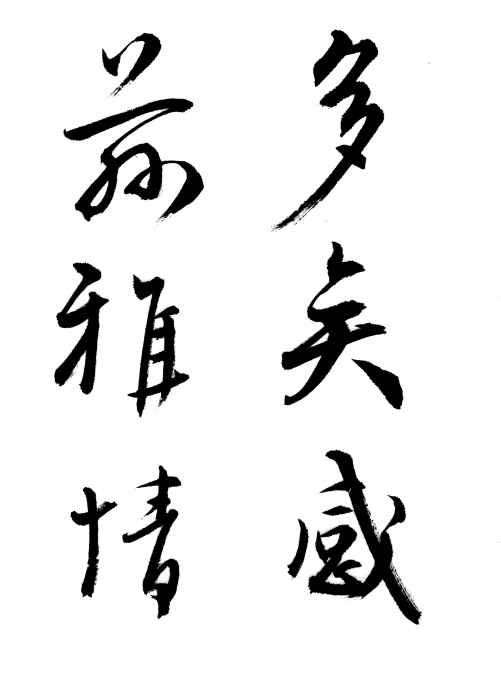 多矣感
前雅情